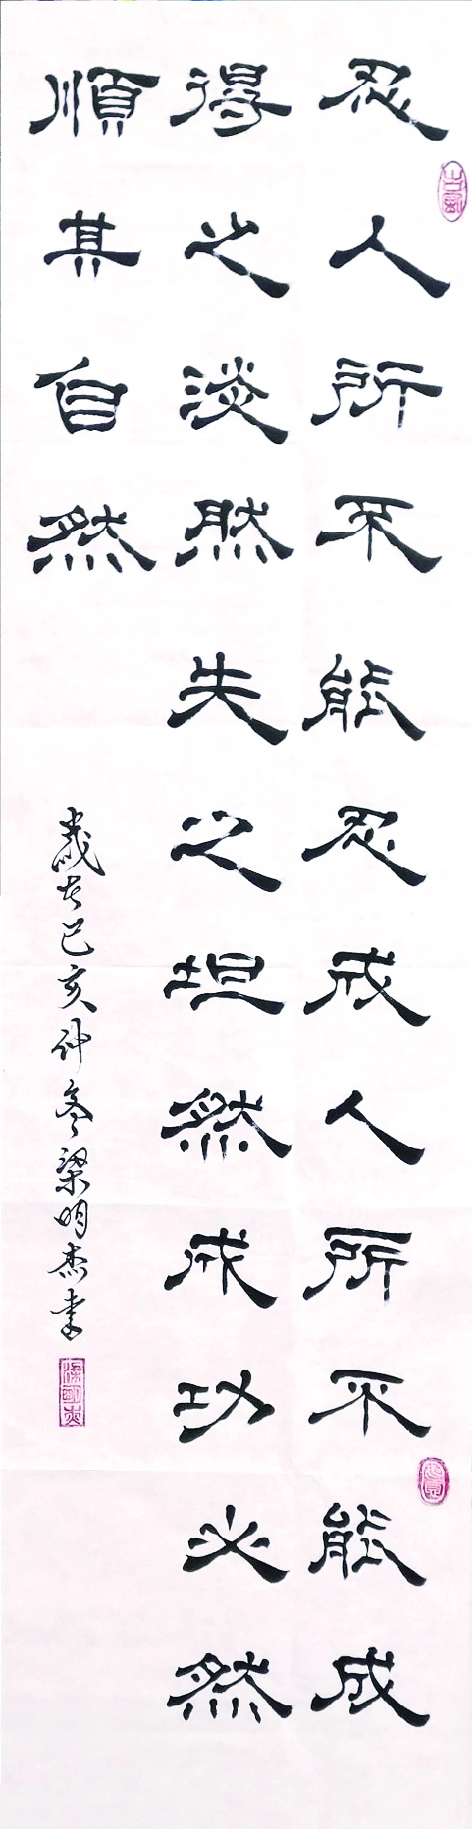 忍人所不能忍成人所不能成
得之淡然失之坦然成功必然
順其自然
歲在己亥仲冬梁明杰書
梁明杰